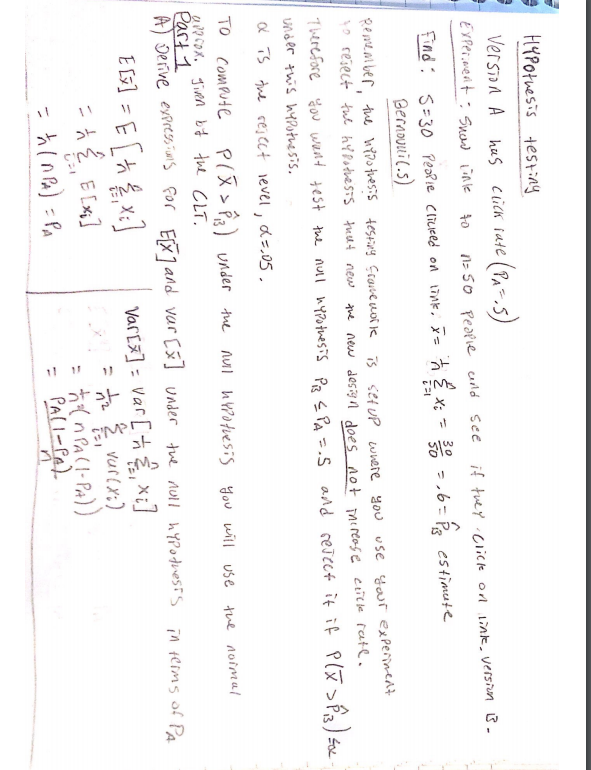 Hypothesis testing
Version A has click rate (PA = .5)
Experiment: Show link to n=50 people and see if they click on link. version B-
Find: S=30 people clicked on link. x̄ = 1/n Σ_{i=1}^n xi = 30/50 = .6 = P̂B estimate
Bernoulli(.5)
Remember, the hypothesis testing framework is setup where you use your experiment
to reject the hypothesis that new the new design does not increase click rate.
Therefore you want test the null hypothesis PB ≤ PA = .5 and reject it if P(X̄ > P̂B) ≤α
under this hypothesis.
α is the reject level, α=.05.
To compute P(X̄ > P̂B) under the null hypothesis you will use the normal
approx given by the CLT.
Part 1
A) Derive expressions for E[x̄] and var[x̄] under the null hypothesis in terms of PA
E[x̄] = E[1/n Σ_{i=1}^n xi]
= 1/n Σ_{i=1}^n E[xi]
= 1/n (nPA) = PA
Var[x̄] = Var[1/n Σ_{i=1}^n xi]
= 1/n² Σ_{i=1}^n var(xi)
= 1/n² (nPA(1-PA))
= PA(1-PA)/n